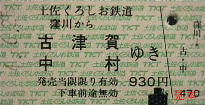 土佐くろしお鉄道
窪川から
古津賀
中村
ゆき
発売当日限り有効 930円
下車前途無効
窪川
古・中
470